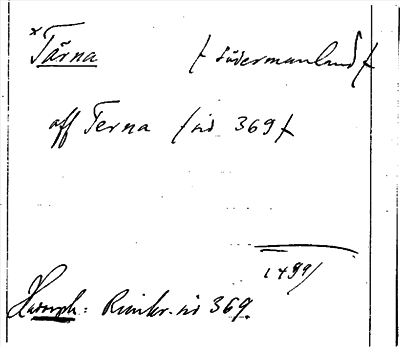 × Tärna (Södermanland)
aff Terna (sid 369)
1499/
Hasnph: Rimkr. sid 369.